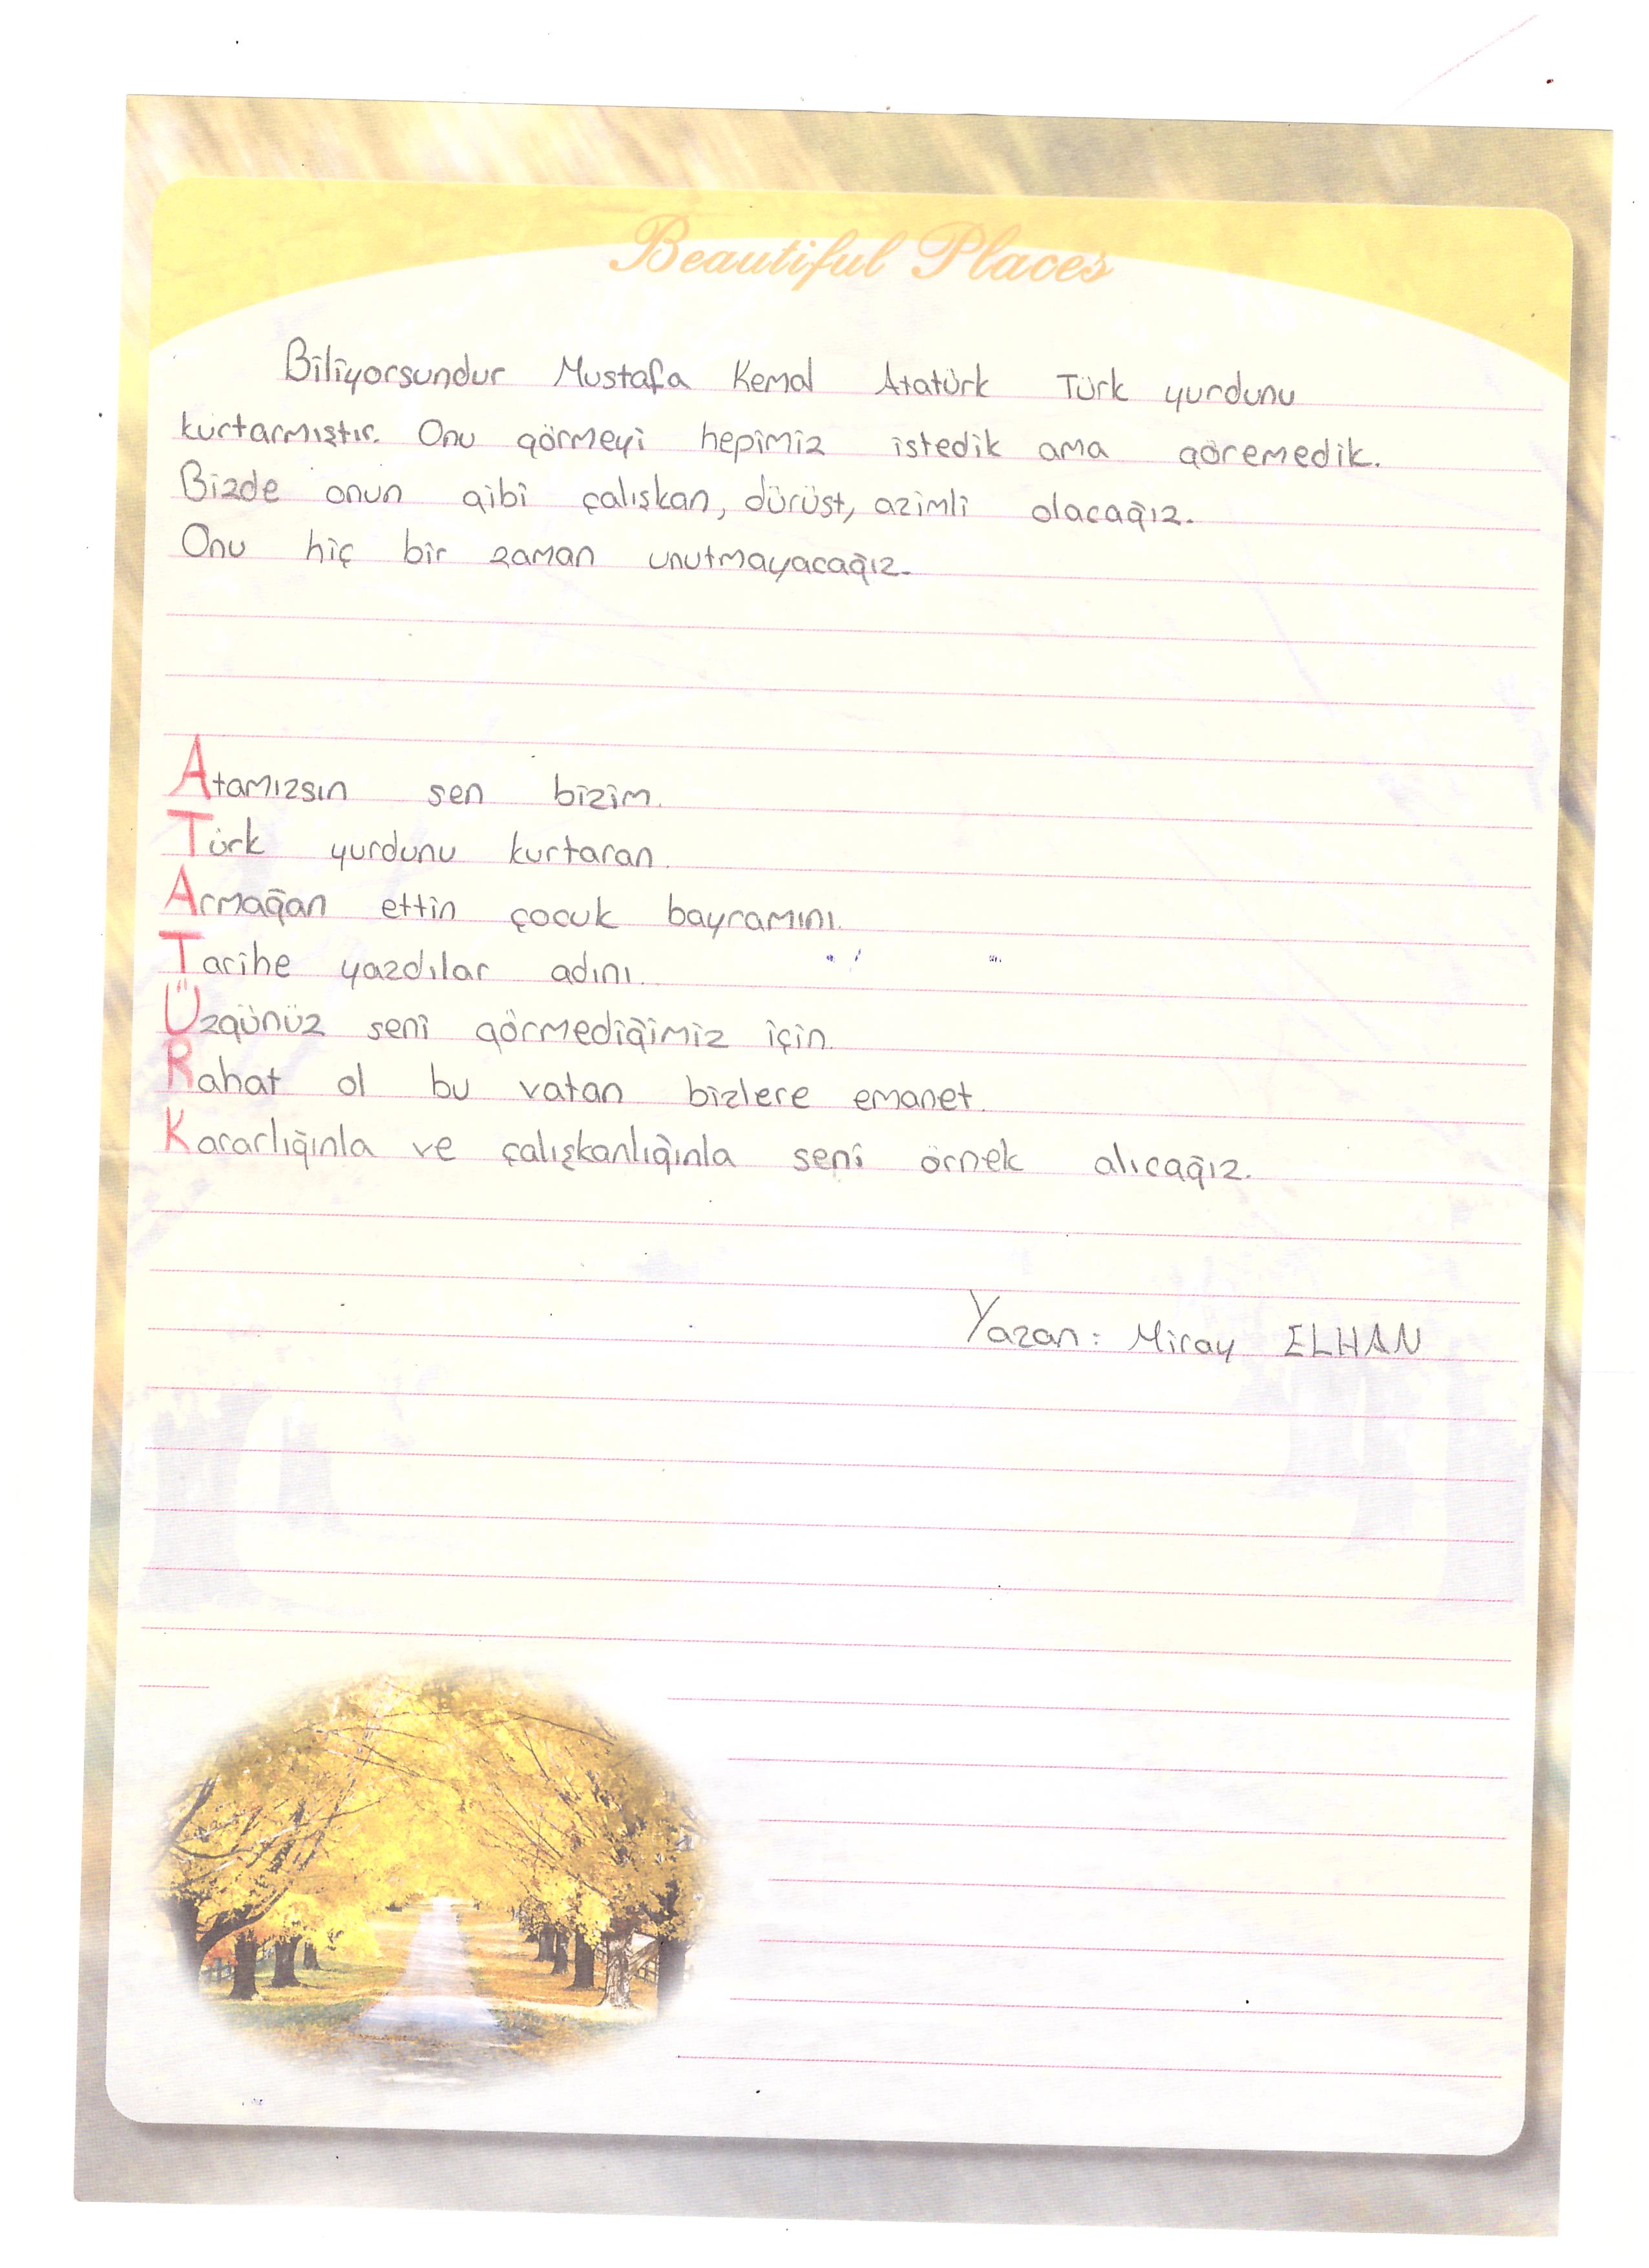 Beautiful Places
Biliyorsundur Mustafa Kemal Atatürk Türk yurdunu
kurtarmıştır. Onu görmeyi hepimiz istedik ama göremedik.
Bizde onun gibi çalışkan, dürüst, azimli olacağız.
Onu hiç bir zaman unutmayacağız.
Atamızsın sen bizim.
Türk yurdunu kurtaran.
Armağan ettin çocuk bayramını.
Tarihe yazdılar adını.
Üzgünüz seni görmediğimiz için.
Rahat ol bu vatan bizlere emanet.
Kararlığınla ve çalışkanlığınla seni örnek alıcağız.
Yazan: Miray ELHAN